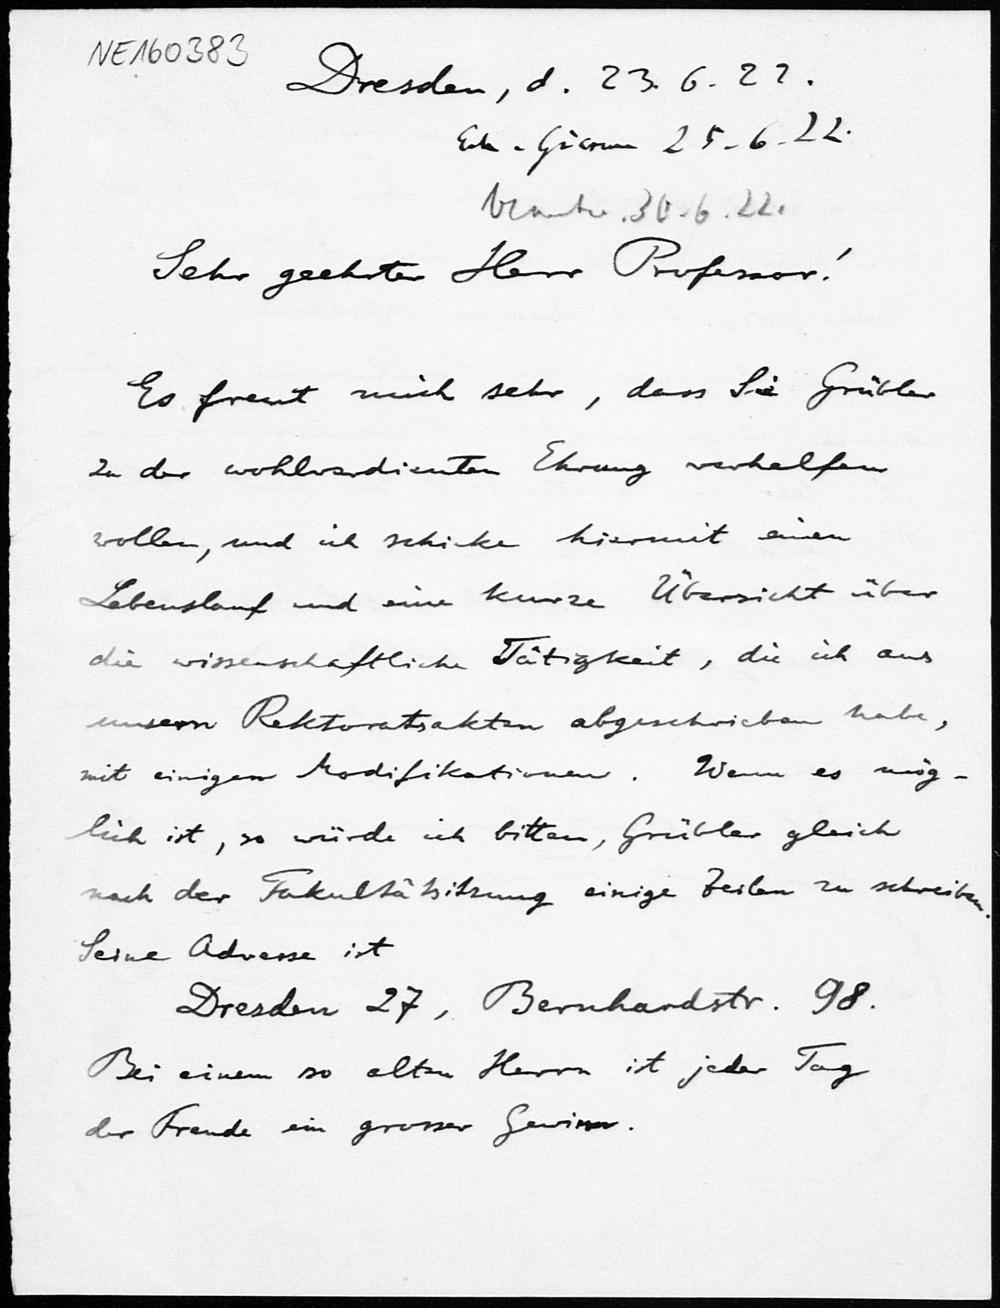 NE160383
Dresden, d. 23. 6. 22.
25. 6. 22.
30. 6. 22.
Sehr geehrter Herr Professor!
Es freut mich sehr, dass Sie Grübler
zu der wohlverdienten Ehrung verhelfen
wollen, und ich schicke hiermit einen
Lebenslauf und eine kurze Übersicht über
die wissenschaftliche Tätigkeit, die ich aus
unsern Rektoratsakten abgeschrieben habe,
mit einigen Modifikationen. Wenn es mög-
lich ist, so würde ich bitten, Grübler gleich
nach der Fakultätsitzung einige Zeilen zu schreiben.
Seine Adresse ist
Dresden 27, Bernhardstr. 98.
Bei einem so alten Herrn ist jeder Tag
der Freude ein grosser Gewinn.